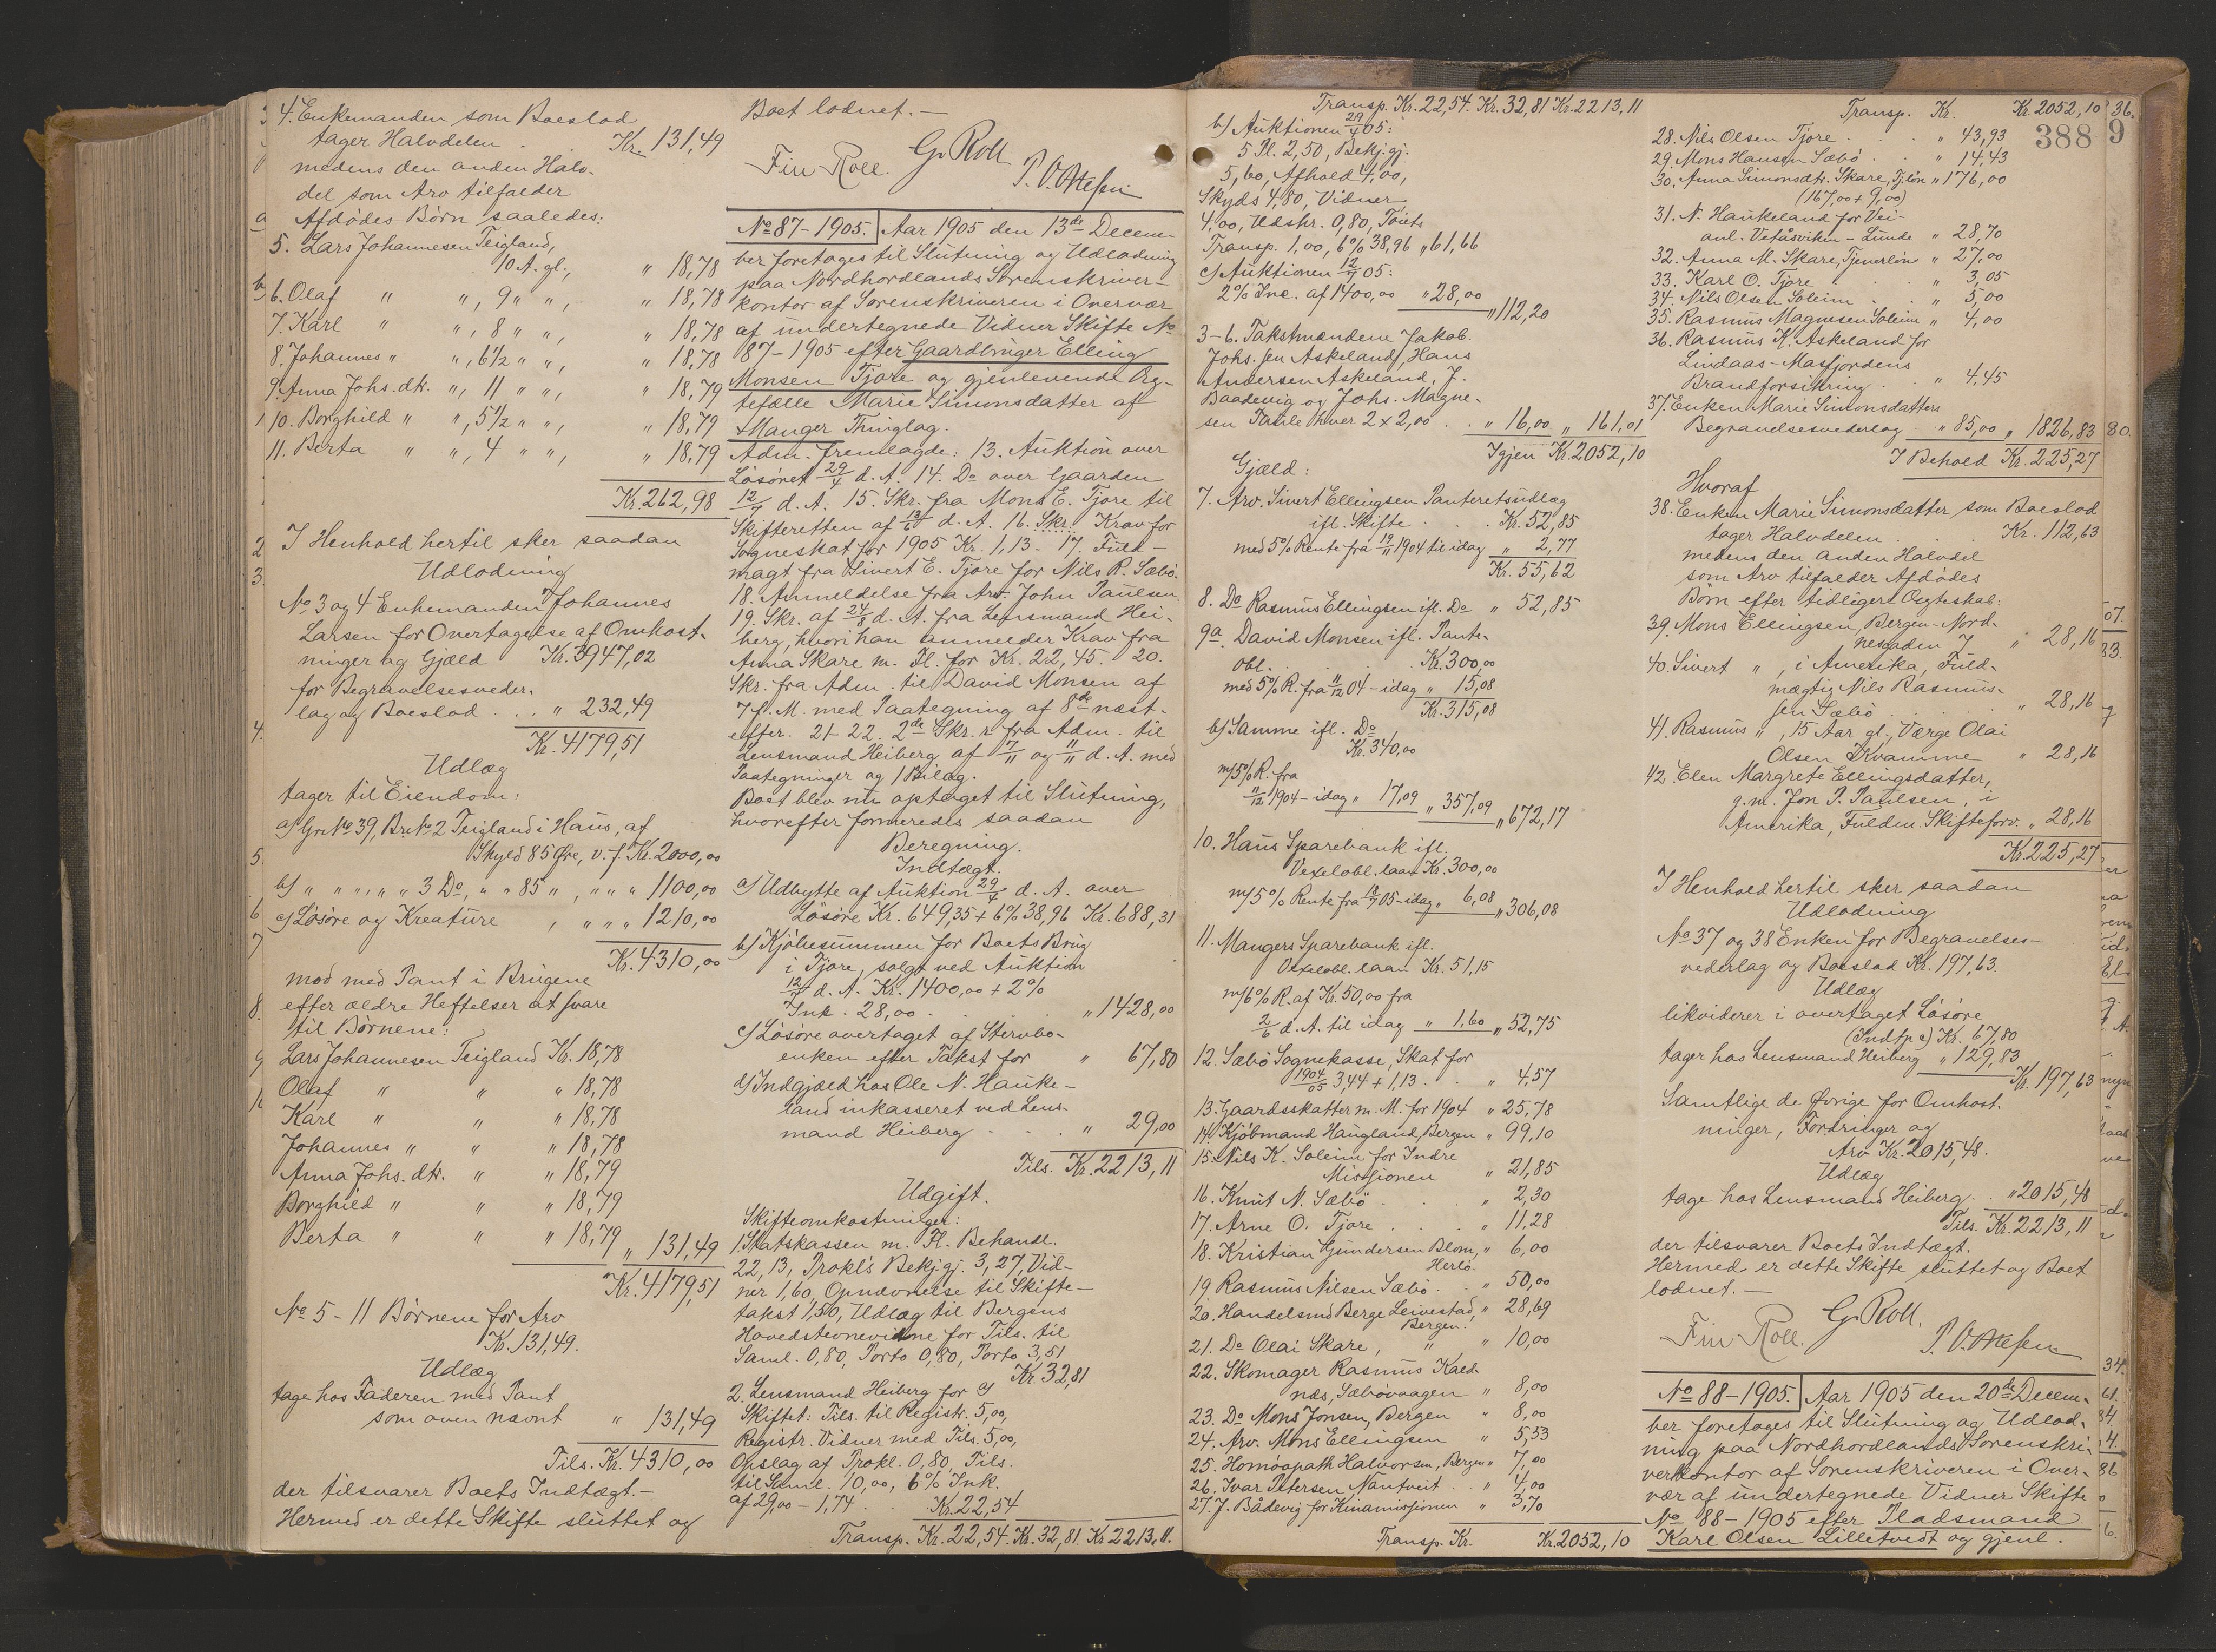 4. Enkemanden som Boeslod
tager Halvdelen . Kr. 131,49
medens den anden Halv-
del som Arv tilfalder
Afdødes Børn saaledes:
5. Lars Johannesen Teigland,
10 A. gl., " 18,78
6. Olaf " ", 9 " ", " 18,78
7. Karl " ", 8 " ", " 18,78
8. Johannes " ", 6½ " ", " 18,78
9. Anna Johs. dtr. ", 11 " ", " 18,79
10. Borghild " ", 5½ " ", " 18,79
11. Berta " ", 4 " ", " 18,79
Kr. 262,98
I Henhold hertil sker saadan
Udlodning
No 3 og 4 Enkemanden Johannes
Larsen for Overtagelse af Omkost-
ninger og Gjæld Kr. 3947,02
for Begravelsesveder-
lag og Boeslod . . " 232,49
Kr. 4179,51
Udlæg
tager til Eiendom:
a) Gr. No 39, Br. No 2 Teigland i Haus, af
Skyld 85 Øre, v. f. Kr. 2000,00
b) " " " " " 3 Do, " " 85 " , " " " 1100,00
c) Løsøre og Kreature , " " " 1210,00
Kr. 4310,00
mod med Pant i Brugene
efter ældre Heftelser at svare
til Børnene:
Lars Johannesen Teigland Kr. 18,78
Olaf " " " 18,78
Karl " " " 18,78
Johannes " " " 18,78
Anna Johs. dtr. " " 18,79
Borghild " " " 18,79
Berta " " " 18,79 " 131,49
Kr. 4179,51
No 5 - 11 Børnene for Arv
Kr. 131,49.
Udlæg
tage hos Faderen med Pant
som oven nævnt " 131,49
Tils. Kr. 4310,00
der tilsvarer Boets Indtægt.-
Hermed er dette Skifte sluttet og
Boet lodnet.-
G. Roll
Fin Roll.
No 87 - 1905. Aar 1905 den 13de Decem-
ber foretoges til Slutning og Udlodning
paa Nordhordlands Sorenskriver-
kontor af Sorenskriveren i Overvær
af undertegnede Vidner Skifte No
87 - 1905 efter Gaardbruger Elling
Monsen Tjore og gjenlevende Æg-
tefælle Marie Simonsdatter af
Manger Thinglag.
Adm. fremlagde: 13. Auktion over
Løsøret 29/4 d. A. 14. Do over Gaarden
12/7 d. A. 15. Skr. fra Mons E. Tjore til
Skifteretten af 13/6 d. A. 16. Skr. Krav for
Sogneskat for 1905 Kr. 1,13 - 17. Fuld-
magt fra Sivert E. Tjore for Nils R. Sæbø.
18. Anmeldelse fra Arv. John Paulsen.
19. Skr. af 24/8 d. A. fra Lensmand Hei-
berg, hvori han anmelder Krav fra
Anna Skare m. Fl. for Kr. 22,45. 20.
Skr. fra Adm. til David Monsen af
7 f. M. med Paategning af 8de næst-
efter. 21 - 22. 2de Skr.r fra Adm. til
Lensmand Heiberg af 7/11 og 11/11 d. A. med
Paategninger og 1 Bilag.
Boet blev nu optaget til Slutning,
hvorefter formeredes saadan
Beregning.
Indtægt.
a) Udbytte af Auktion 29/4 d. A. over
Løsøre Kr. 649,35 + 6% 38,96 Kr. 688,31
b) Kjøbesummen for Boets Brug
i Tjore, solgt ved Auktion
12/7 d. A. Kr. 1400,00 + 2%
Ink. 28,00 . . . " 1428,00
c) Løsøre overtaget af Stervbo-
enken efter Takst for " 67,80
d) Indgjæld hos Ole N. Hauke-
land inkasseret ved Lens-
mand Heiberg . . . " 29,00
Tils. Kr. 2213,11
Udgift.
Skifteomkostninger:
1. Statskassen m. Fl. Behandl.
22,13, Prokl's Bekj.gj. 3,27, Vid-
ner 1,60, Opnævnelse til Skifte-
takst 1,50, Udlæg til Bergens
Hovedstevnevidne for Tils. til
Saml. 0,80, Porto 0,80, Porto 3,51
Kr. 32,81
2. Lensmand Heiberg for a)
Skiftet: Tils. til Registr. 5,00,
Registr. Vidner med Tils. 5,00,
Opslag af Prokl. 0,80, Tils.
til Saml. 10,00, 6% Ink.
af 29,00 - 1,74 . . Kr. 22,54
Transp. Kr. 22,54. Kr. 32,81. Kr. 2213,11.
Transp. Kr. 22,54. Kr. 32,81 Kr. 2213,11
b) Auktionen 29/4 05:
5 Pl. 2,50, Bekj.gj.
5,60, Afhold 4,00,
Skyds 4,80, Vidner
4,00, Udskr. 0,80, Toiets
Transp. 1,00, 6% 38,96 " 61,66
c) Auktionen 12/7 05:
2% Inc. af 1400,00 " 28,00
" 112,20
3-6. Takstmændene Jakob
Johs. sen Askeland, Hans
Andersen Askeland, J.
Baadevig og Johs. Magne-
sen Taule hver 2 x 2,00 . . " 16,00 " 161,01
Igjen Kr. 2052,10
Gjæld:
7. Arv. Sivert Ellingsen Panteretsudlæg
ifl. Skifte . . . Kr. 52,85
med 5% Rente fra 19/11 1904 til idag " 2,77
Kr. 55,62
8. Do Rasmus Ellingsen ifl. Do " 52,85
9a. David Monsen ifl. Pante-
obl. . . . Kr. 300,00
med 5% R. fra 11/12 04 - idag " 15,08
Kr. 315,08
b) Samme ifl. Do
Kr. 340,00
m/5% R. fra
11/12 1904 - idag " 17,09 " 357,09 " 672,17
10. Haus Sparebank ifl.
Vexelobl. laan Kr. 300,00
m/5% Rente fra 18/7 05 - idag " 6,08 " 306,08
11. Mangers Sparebank ifl.
Vexelobl. laan Kr. 51,15
m/6% R. af Kr. 50,00 fra
2/6 d. A. til idag " 1,60 " 52,75
12. Sæbø Sognekasse, Skat for
1904/05 3,44 + 1,13 . . " 4,57
13. Gaardsskatter m. M. for 1904 " 25,78
14. Kjøbmand Haugland, Bergen " 99,10
15. Nils K. Soleim for Indre
Missionen " 21,85
16. Knut N. Sæbø . . " 2,30
17. Arne O. Tjore . . . " 11,28
18. Kristian Gundersen Blom, " 6,00
Herlø.
19. Rasmus Nilsen Sæbø . " 50,00
20. Handelsmd Berge Leivestad, " 28,69
Bergen.
21. Do Olai Skare, " " 10,00
22. Skomager Rasmus Kald-
næs, Sæbøvaagen " 8,00
23. Do Mons Jonsen, Bergen " 8,00
24. Arv. Mons Ellingsen " 5,53
25. Homøopath Halvorsen, Bergen " 7,00
26. Ivar Petersen, Nautveit . . " 4,00
27. J. Bådevig for Kinamissionen " 3,70
Transp. Kr. Kr. 2052,10
Transp. Kr. Kr. 2052,10
388
28. Nils Olsen Tjore . . " 43,93
29. Mons Hansen Sæbø . . " 14,43
30. Anna Simonsdtr. Skare, Tj.løn " 176,00
(167,00 + 9,00)
31. N. Haukeland for Vei-
anl. Vetåsviken - Lunde " 28,70
32. Anna M. Skare, Tjenerløn " 27,00
33. Karl O. Tjore . . " 3,05
34. Nils Olsen Soleim . . " 5,00
35. Rasmus Magnesen Soleim " 4,00
36. Rasmus K. Askeland for
Lindaas - Masfjordens
Brandforsikring . . " 4,45
37. Enken Marie Simonsdatters
Begravelsesvederlag " 85,00 " 1826,83
I Behold Kr. 225,27
Hvoraf
38. Enken Marie Simonsdatter som Boeslod
tager Halvdelen . . Kr. 112,63
medens den anden Halvdel
som Arv tilfalder Afdødes
Børn efter tidligere Ægteskab:
39. Mons Ellingsen, Bergen - Nord-
nesgaden 7 " 28,16
40. Sivert ", i Amerika, Fuld-
mægtig Nils Rasmus-
sen Sæbø " 28,16
41. Rasmus ", 15 Aar gl., Værge Olai
Olsen Kvamme " 28,16
42. Elen Margrete Ellingsdatter,
g. m. Jon P. Paulsen, i
Amerika, Fuldm. Skifteforv. " 28,16
Kr. 225,27
I Henhold hertil sker saadan
Udlodning
No 37 og 38 Enken for Begravelses-
vederlag og Boeslod Kr. 197,63.
Udlæg
likviderer i overtaget Løsøre
(Indtp c) Kr. 67,80
tager hos Lensmand Heiberg " 129,83
Kr. 197,63
Samtlige de Øvrige for Omkost-
ninger, Fordringer og
Arv Kr. 2015,48.
Udlæg
tage hos Lensmand Heiberg . . " 2015,48
Tils. Kr. 2213,11
der tilsvarer Boets Indtægt.
Hermed er dette Skifte sluttet og Boet
lodnet.-
G. Roll.
Fin Roll.
No 88 - 1905. Aar 1905 den 20de Decem-
ber foretoges til Slutning og Udlod-
ning paa Nordhordlands Sorenskri-
verkontor af Sorenskriveren i Over-
vær af undertegnede Vidner Skifte
No 88 - 1905 efter Pladsmand
Karl Olsen Lilletvedt og gjenl.